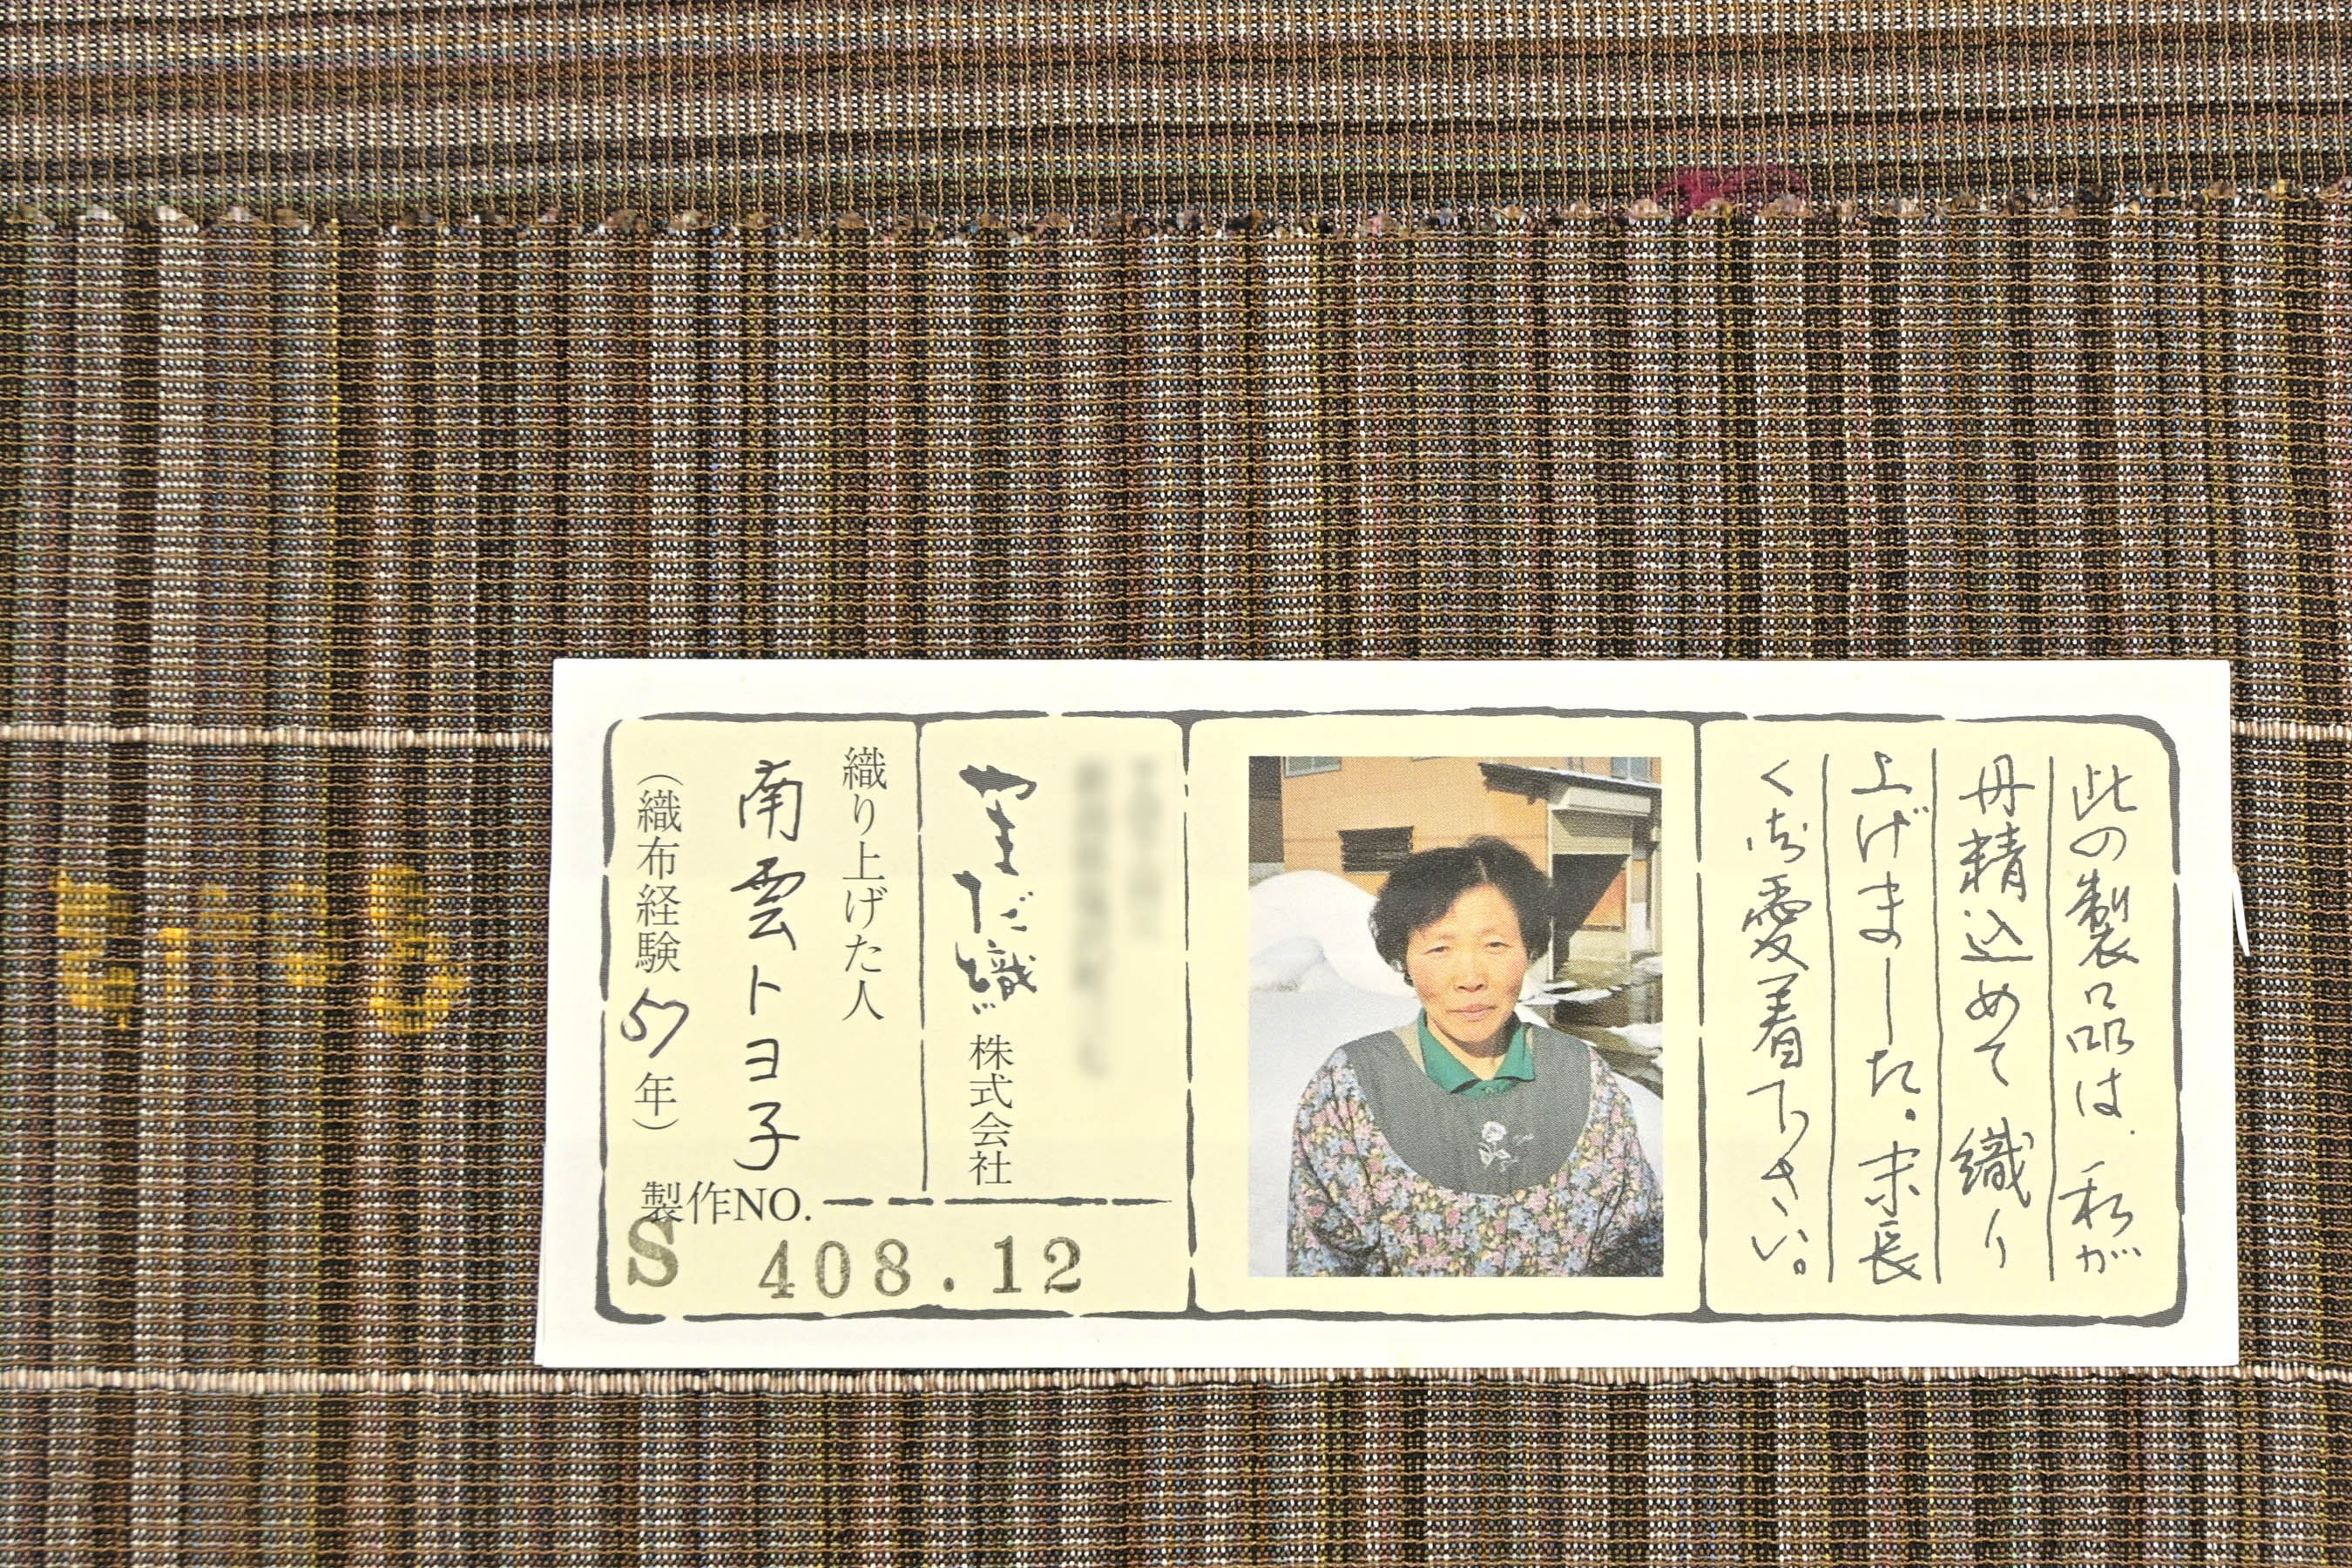 此の製品は、私が
丹精込めて織り
上げました。末長
く御愛着下さい。
やまだ織
株式会社
織り上げた人
南雲トヨ子
(織布経験57年)
製作NO.
S 408.12